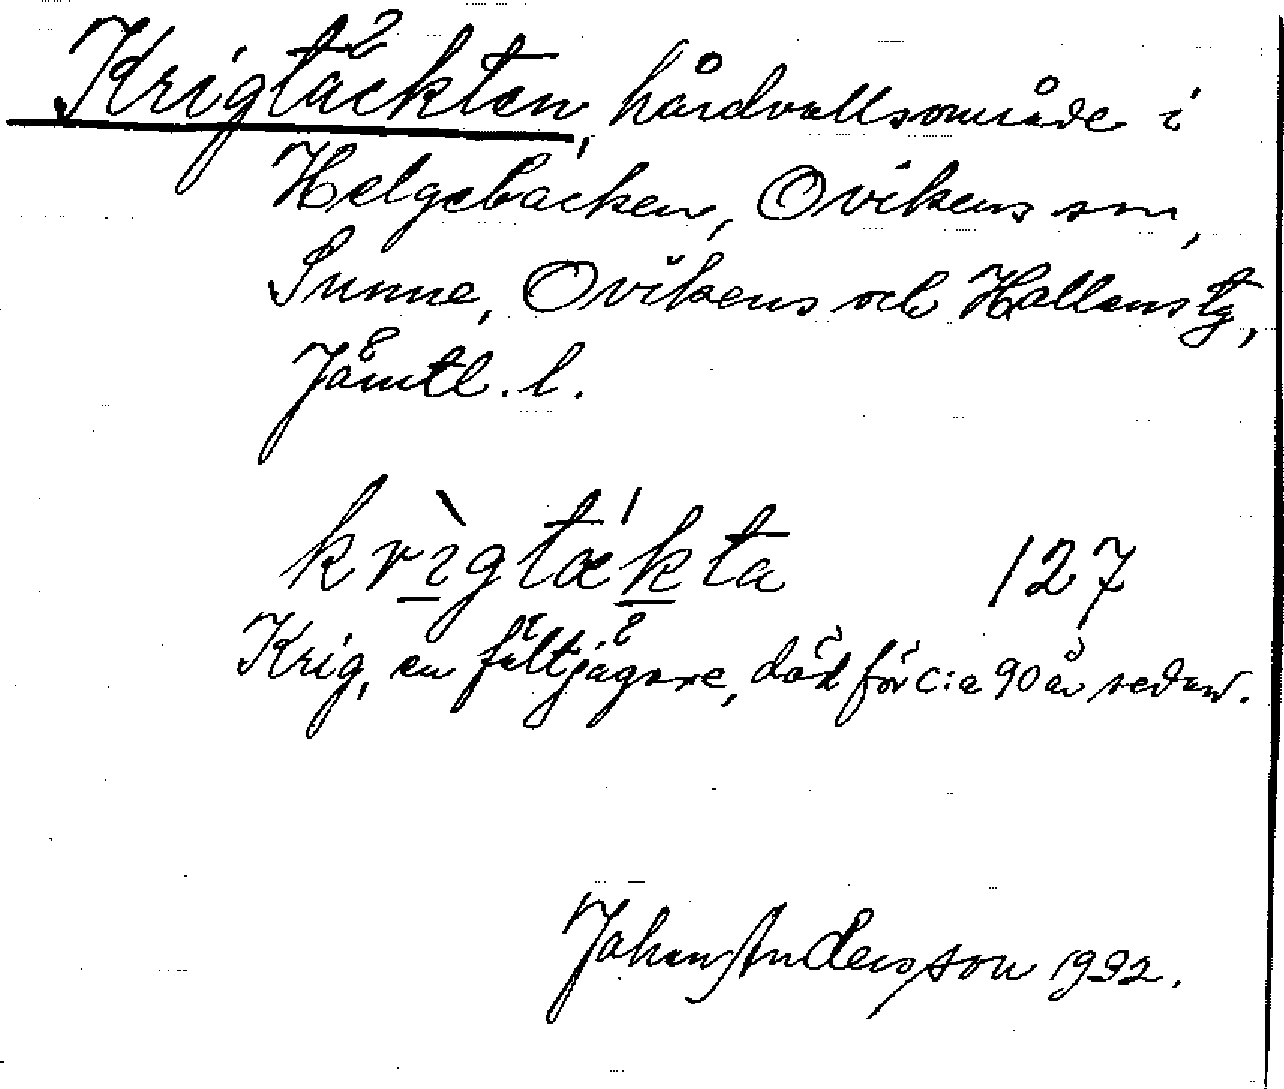 Krigtäckten, hårdvallsområde i
Helgebacken, Ovikens sn,
Sunne, Ovikens och Hallens tg,
Jämtl. l.
krìgtæ´kta 127
Krig, en fältjägare, död för c:a 90 år sedan.
Johan Andersson 1932.